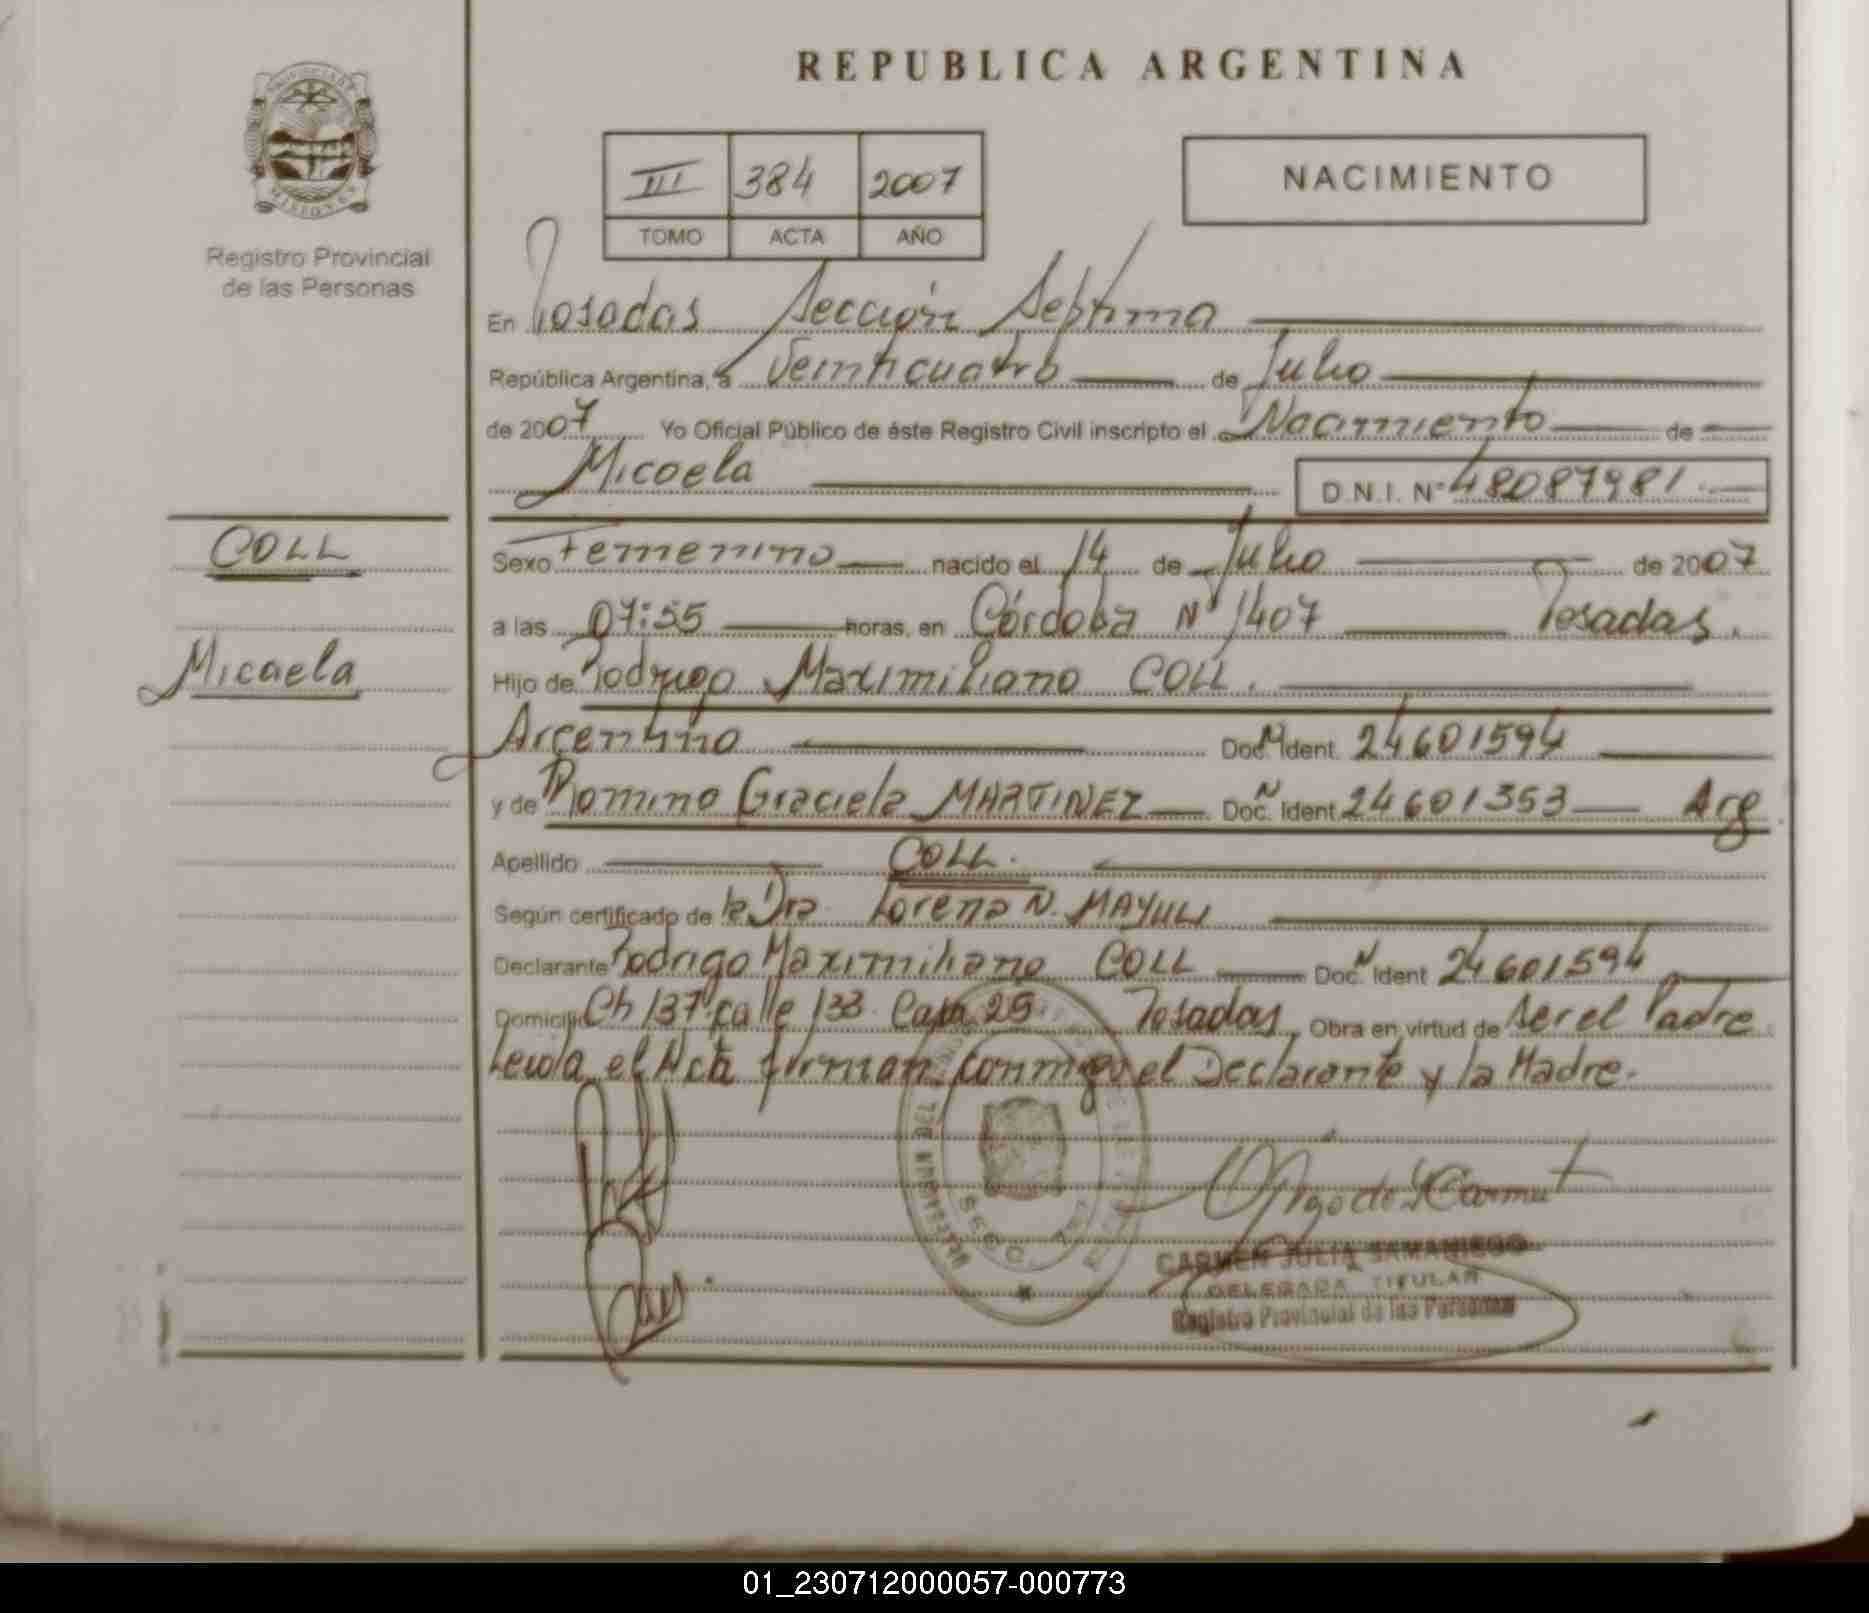 REPUBLICA ARGENTINA
PROVINCIA DE MISIONES
Registro Provincial
de las Personas
III 384 2007
TOMO ACTA AÑO
NACIMIENTO
En Posadas Sección Septima
República Argentina, a Veinticuatro de Julio
de 2007 Yo Oficial Público de éste Registro Civil inscripto el Nacimiento de
Micaela D.N.I. Nº 48087981.
COLL
Micaela
Sexo Femenino nacido el 14 de Julio de 2007
a las 07:55 horas, en Córdoba Nº 1407 Posadas.
Hijo de Rodrigo Maximiliano COLL.
Argentino Doc. N Ident. 24601594
y de Romina Graciela MARTINEZ Doc. N Ident. 24601353 Arg
Apellido COLL.
Según certificado de la Dra. Lorena N. MAYULI
Declarante Rodrigo Maximiliano COLL Doc. N Ident 24601594
Domicilio Ch 137 calle 133. Casa 25 Posadas, Obra en virtud de ser el Padre
Leida el Acta firman conmigo el Declarante y la Madre.
CARMEN JULIA SAMANIEGO
DELEGADA TITULAR
Registro Provincial de las Personas
01_230712000057-000773